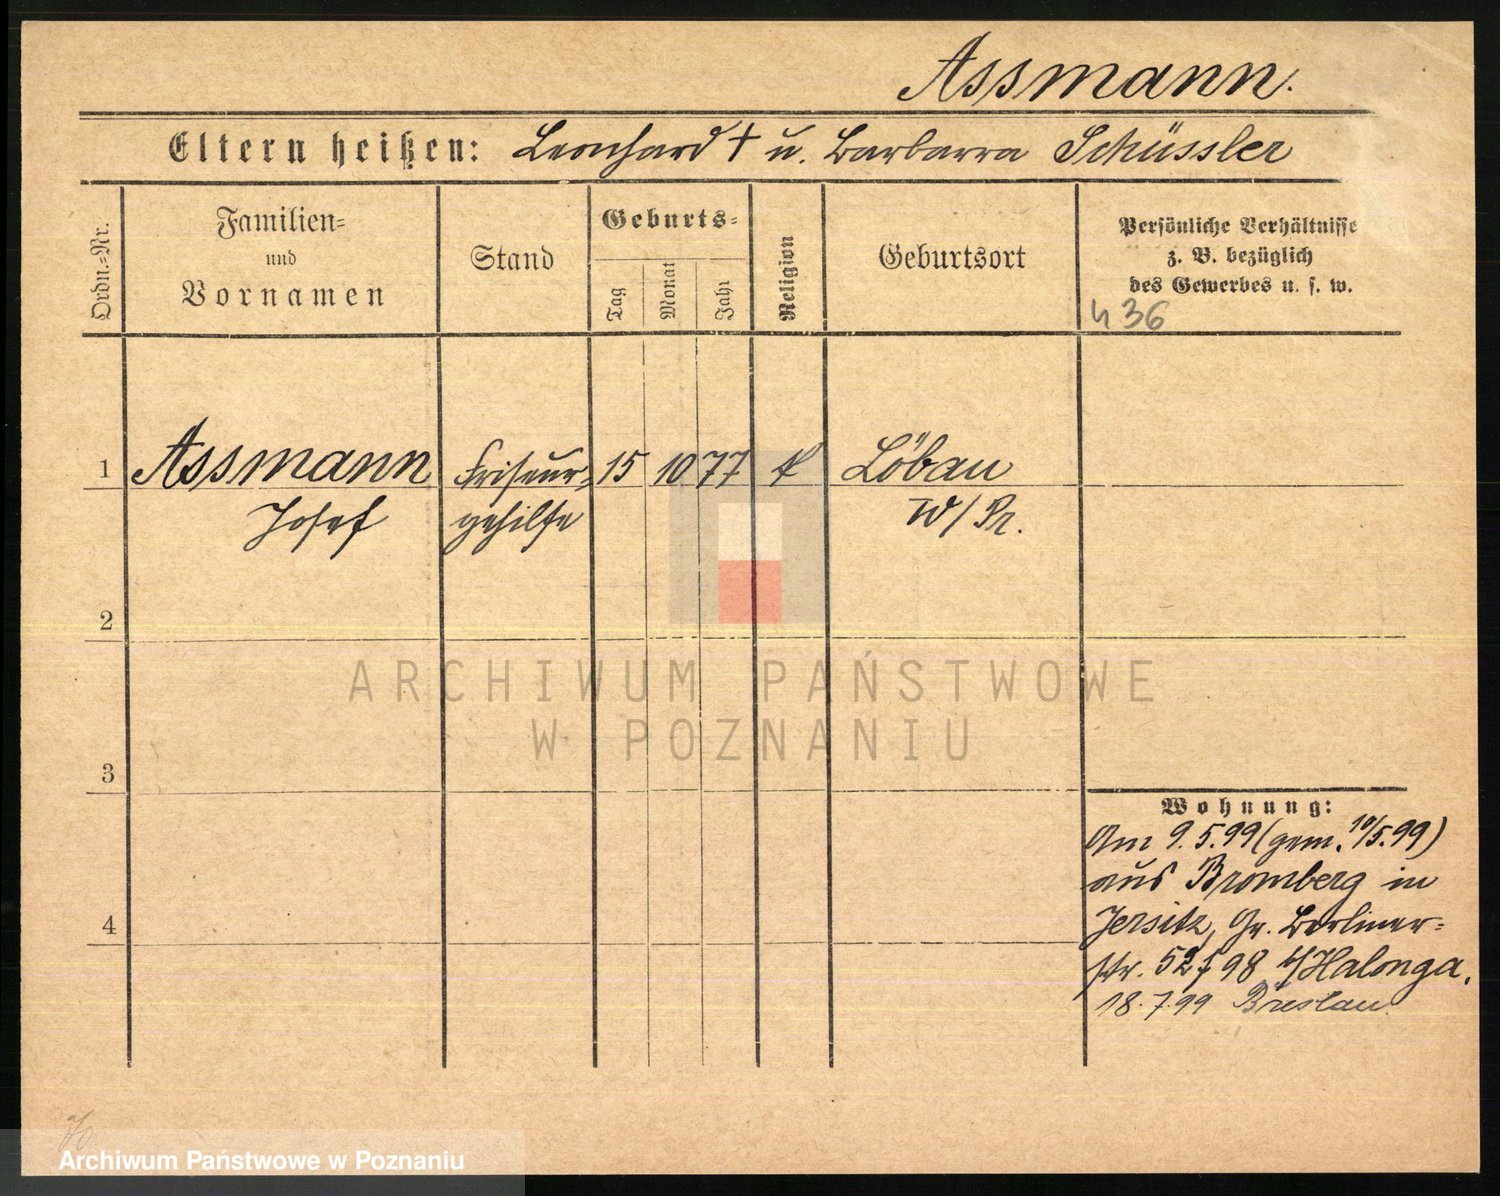 Assmann.
Eltern heißen: Leonhard † u. Barbarra Schüssler
Ordn.-Nr.
Familien-
und
Vornamen
Stand
Geburts-
Tag
Monat
Jahr
Religion
Geburtsort
Persönliche Verhältnisse
z. B. bezüglich
des Gewerbes u. s. w.
436
1 Assmann Friseur- 15 10 77 k Löbau
Josef gehilfe W/Pr.
2
3
4
Wohnung:
Am 9.5.99 (gem. 10/5.99)
aus Bromberg in
Jersitz, Gr. Berliner-
str. 52/98 b/Halonga.
18.7.99 Breslau
ARCHIWUM PAŃSTWOWE
W POZNANIU
Archiwum Państwowe w Poznaniu